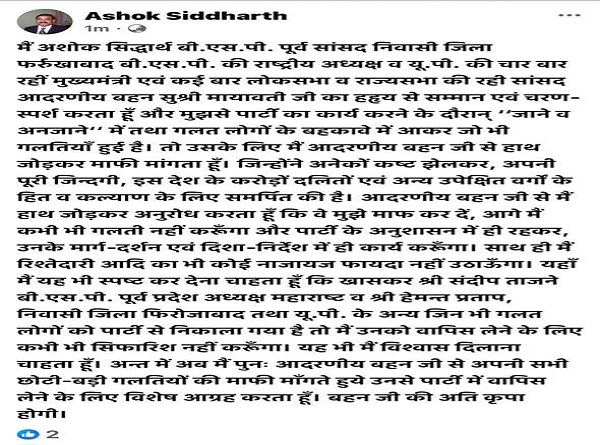 Ashok Siddharth
1m
मैं अशोक सिद्धार्थ बी.एस.पी. पूर्व सांसद निवासी जिला
फर्रुखाबाद बी.एस.पी. की राष्ट्रीय अध्यक्ष व यू.पी. की चार बार
रहीं मुख्यमंत्री एवं कई बार लोकसभा व राज्यसभा की रही सांसद
आदरणीय बहन सुश्री मायावती जी का हहृय से सम्मान एवं चरण-
स्पर्श करता हूँ और मुझसे पार्टी का कार्य करने के दौरान् ‘‘जाने व
अनजाने‘‘ में तथा गलत लोगों के बहकावे में आकर जो भी
गलतियाँ हुई है। तो उसके लिए मैं आदरणीय बहन जी से हाथ
जोड़कर माफी मांगता हूँ। जिन्होंने अनेकों कष्ट झेलकर, अपनी
पूरी जिन्दगी, इस देश के करोड़ों दलितों एवं अन्य उपेक्षित वर्गों के
हित व कल्याण के लिए समर्पित की है। आदरणीय बहन जी से मैं
हाथ जोड़कर अनुरोध करता हूँ कि वे मुझे माफ कर दें, आगे मैं
कभी भी गलती नहीं करूँगा और पार्टी के अनुशासन में ही रहकर,
उनके मार्ग-दर्शन एवं दिशा-निर्देश में ही कार्य करूँगा। साथ ही मैं
रिश्तेदारी आदि का भी कोई नाजायज फायदा नहीं उठाऊँगा। यहाँ
मैं यह भी स्पष्ट कर देना चाहता हूँ कि खासकर श्री संदीप ताजने
बी.एस.पी. पूर्व प्रदेश अध्यक्ष महाराष्ट व श्री हेमन्त प्रताप,
निवासी जिला फिरोजाबाद तथा यू.पी. के अन्य जिन भी गलत
लोगों को पार्टी से निकाला गया है तो मैं उनको वापिस लेने के लिए
कभी भी सिफारिश नहीं करूँगा। यह भी मैं विश्वास दिलाना
चाहता हूँ। अन्त में अब मैं पुनः आदरणीय बहन जी से अपनी सभी
छोटी-बड़ी गलतियों की माफी माँगते हुये उनसे पार्टी में वापिस
लेने के लिए विशेष आग्रह करता हूँ। बहन जी की अति कृपा
होगी।
2